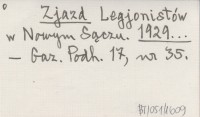 Zjazd Legjonistów
w Nowym Sączu. 1929...
— Gaz. Podh. 17, nr 35.